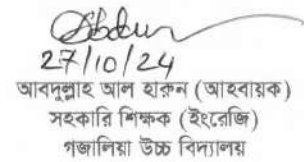 27/10/24
আবদুল্লাহ আল হারুন (আহবায়ক)
সহকারি শিক্ষক (ইংরেজি)
গজালিয়া উচ্চ বিদ্যালয়